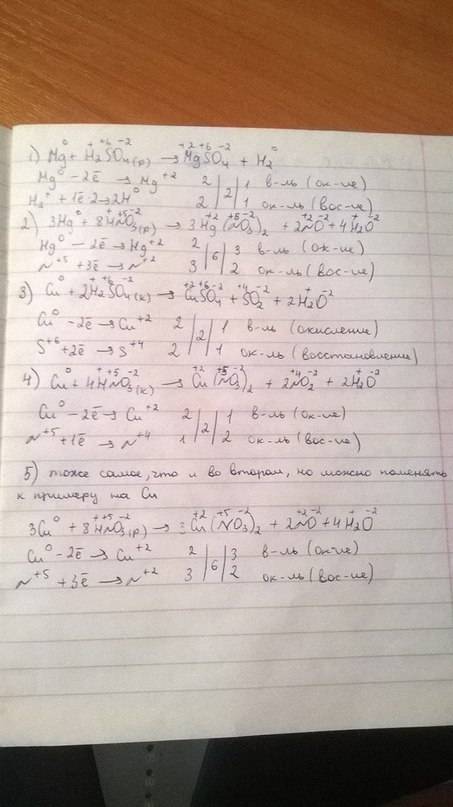 1) Mg⁰ + H₂⁺S⁺⁶O₄⁻²(р) → Mg⁺²S⁺⁶O₄⁻² + H₂⁰
Mg⁰ - 2ē → Mg⁺² 2 | 2 | 1 в-ль (ок-ие)
H₂⁺ + 1ē·2 → 2H⁰ 2 | | 1 ок-ль (вос-ие)
2) 3Hg⁰ + 8H⁺N⁺⁵O₃⁻²(р) → 3Hg⁺²(N⁺⁵O₃⁻²)₂ + 2N⁺²O⁻² + 4H₂⁺O⁻²
Hg⁰ - 2ē → Hg⁺² 2 | 6 | 3 в-ль (ок-ие)
N⁺⁵ + 3ē → N⁺² 3 | | 2 ок-ль (вос-ие)
3) Cu⁰ + 2H₂⁺S⁺⁶O₄⁻²(к) → Cu⁺²S⁺⁶O₄⁻² + S⁺⁴O₂⁻² + 2H₂⁺O⁻²
Cu⁰ - 2ē → Cu⁺² 2 | 2 | 1 в-ль (окисление)
S⁺⁶ + 2ē → S⁺⁴ 2 | | 1 ок-ль (восстановление)
4) Cu⁰ + 4H⁺N⁺⁵O₃⁻²(к) → Cu⁺²(N⁺⁵O₃⁻²)₂ + 2N⁺⁴O₂⁻² + 2H₂⁺O⁻²
Cu⁰ - 2ē → Cu⁺² 2 | 2 | 1 в-ль (ок-ие)
N⁺⁵ + 1ē → N⁺⁴ 1 | | 2 ок-ль (вос-ие)
5) тоже самое, что и во втором, но можно поменять
к примеру на Cu
3Cu⁰ + 8H⁺N⁺⁵O₃⁻²(р) → 3Cu⁺²(N⁺⁵O₃⁻²)₂ + 2N⁺²O⁻² + 4H₂⁺O⁻²
Cu⁰ - 2ē → Cu⁺² 2 | 6 | 3 в-ль (ок-ие)
N⁺⁵ + 3ē → N⁺² 3 | | 2 ок-ль (вос-ие)